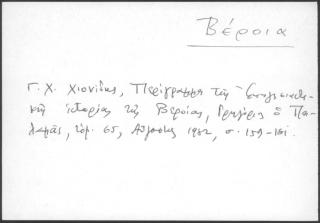 Βέροια
Γ. Χ. Χιονίδης, Περίγραμμα τῆς Ἐκκλησιαστι-
κῆς ἱστορίας τῆς Βεροίας, Γρηγόριος ὁ Πα-
λαμᾶς, τόμ. 65, Αὔγουστος 1982, σ. 159-161.